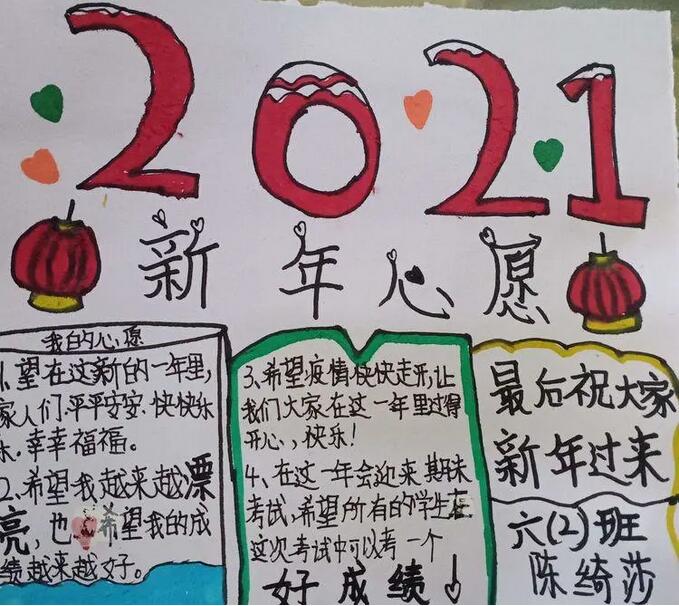 2021
新年心愿
我的心愿
1、望在这新的一年里,
家人们:平平安安、快快乐
乐、幸幸福福。
2、希望我越来越漂
亮,也希望我的成
绩越来越好。
3、希望疫情快快走开,让
我们大家在这一年里过得
开心,、快乐!
4、在这一年会迎来期末
考试,希望所有的学生在
这次考试中可以考一个
好成绩!
最后祝大家
新年过来
六(2)班
陈绮莎